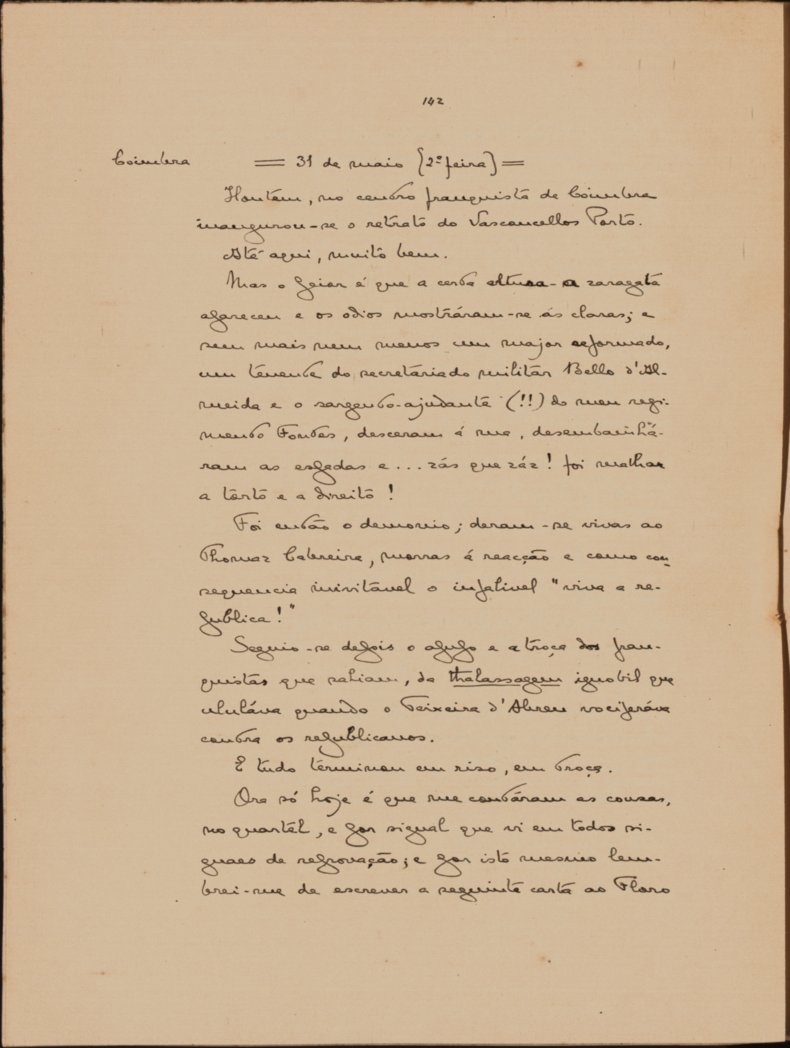 142
Coimbra = 31 de maio (2ª feira) =
Hontem, no centro franquista de Coimbra
inaugurou-se o retrato do Vasconcellos Porto.
Até aqui, muito bem.
Mas o peior é que a certa altura a zaragata
appareceu e os odios mostráram-se ás claras; e
sem mais nem menos um major reformado,
um tenente do secretariado militar Bello d'Al-
meida e o sargento-ajudante (!!) do meu regi-
mento Fontes, desceram á rua, desembainhá-
ram as espadas e... zás que záz! foi malhar
a torto e a direito!
Foi então o demonio; deram-se vivas ao
Thomaz Cabreira, morras á reacção e como con-
sequencia inivitável o infalivel "viva a re-
publica!"
Seguio-se depois o apupo e a troça dos fran-
quistas que sahiam, da thalassagem ignobil que
ululáva quando o Teixeira d'Abreu vociferáva
contra os republicanos.
E tudo terminou em riso, em troça.
Ora só hoje é que me contáram as cousas,
no quartel, e por signal que vi em todos si-
gnaes de reprovação; e por isto mesmo lem-
brei-me de escrever a seguinte carta ao Floro